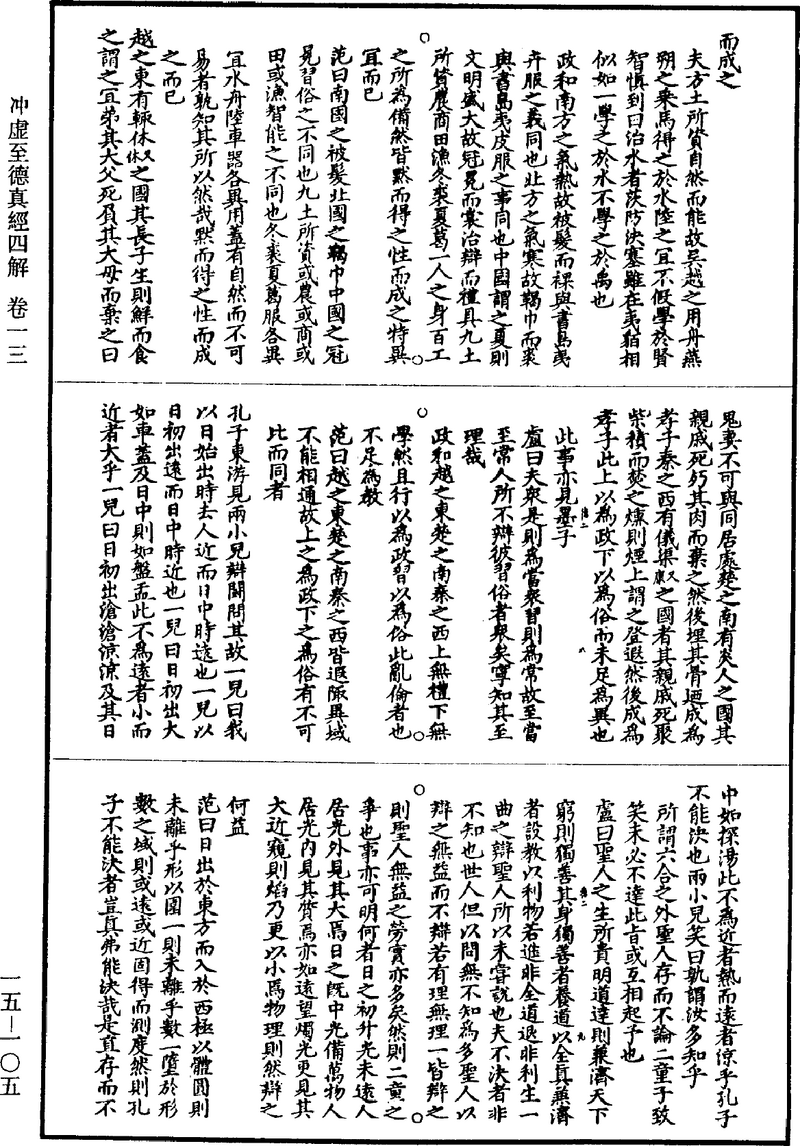 而成之
夫方土所資自然而能故吴越之用舟燕
朔之乘馬得之於水陸之宜不假學於賢
智慎到曰治水者茨防決塞雖在夷貊相
似如一學之於水不學之於禹也
政和南方之氣熱故被髮而裸與書島夷
卉服之義同也北方之氣寒故鞨巾而裘
與書島夷皮服之事同也中國謂之夏則
文明盛大故冠冕而裳治辯而禮具九土
所資農商田漁冬裘夏葛一人之身百工
之所為備然皆黙而得之性而成之特異
宜而已
范曰南國之被髮北國之鞨巾中國之冠
冕習俗之不同也九土所資或農或商或
田或漁智能之不同也冬裘夏葛服各異
宜水舟陸車器各異用蓋有自然而不可
易者孰知其所以然哉黙而得之性而成
之而已
越之東有輒休之國其長子生則鮮而食
之謂之宜弟其大父死負其大母而棄之曰
鬼妻不可與同居處楚之南有炎人之國其
親戚死𣧑其肉而棄之然後埋其骨迺成為
孝子秦之西有儀渠之國者其親戚死聚
柴積而焚之燻則煙上謂之登遐然後成為
孝子此上以為政下以為俗而未足為異也
此事亦見墨子
盧曰夫衆是則為當衆習則為常故至當
至常人所不辯彼習俗者衆矣寧知其至
理哉
政和越之東楚之南秦之西上無禮下無
學然且行以為政習以為俗此亂倫者也
不足為教
范曰越之東楚之南秦之西皆遐陬異域
不能相通故上之為政下之為俗有不可
比而同者
孔子東游見兩小兒辯闘問其故一兒曰我
以日始出時去人近而日中時遠也一兒以
日初出遠而日中時近也一兒曰日初出大
如車蓋及日中則如盤盂此不為遠者小而
近者大乎一兒曰日初出滄滄涼涼及其日
中如探湯此不為近者熱而遠者涼乎孔子
不能決也兩小兒笑曰孰謂汝多知乎
所謂六合之外聖人存而不論二童子致
笑未必不達此旨或互相起予也
盧曰聖人之生所貴明道達則兼濟天下
窮則獨善其身獨善者養道以全真兼濟
者設教以利物若進非全道退非利生一
曲之辯聖人所以未嘗說也夫不決者非
不知也世人但以問無不知為多聖人以
辯之無益而不辯若有理無理一皆辯之
則聖人無益之勞實亦多矣然則二童之
爭也事亦可明何者日之初升光未遠人
居光外見其大焉日之既中光備萬物人
居光内見其質焉亦如遠望燭光更見其
大近窺則焰乃更以小焉物理則然辯之
何益
范曰日出於東方而入於西極以體圓則
未離乎形以圍一則未離乎數一墮於形
數之域則或遠或近固得而測度然則孔
子不能決者豈真弗能決哉是直存而不
冲虛至德真經四解 卷一三
一五—一〇五